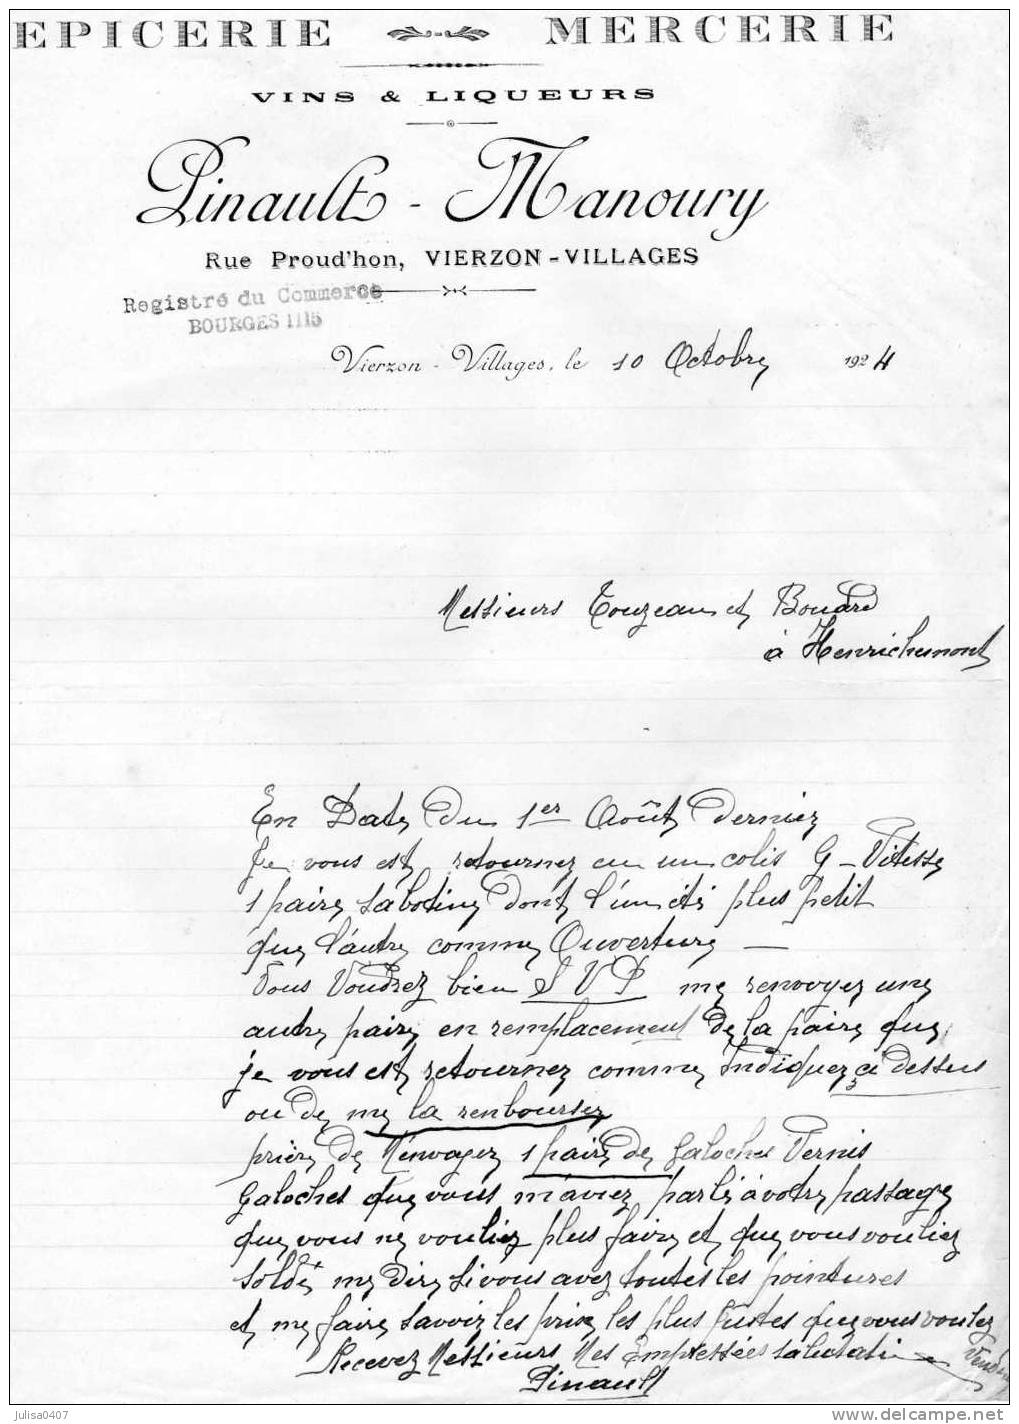 EPICERIE MERCERIE
VINS & LIQUEURS
Pinault - Manoury
Rue Proud'hon, VIERZON-VILLAGES
Registre du Commerce
BOURGES 1115
Vierzon-Villages, le 10 Octobre 1924
Messieurs Touzeau et Boudré
à Henrichemont
En Date Du 1er Août Dernier
Je vous est retournez en un colis G-Vitesse
1 paire sabotine dont l'un été plus petit
que l'autre comme Ouverture —
Vous Voudrez bien S V P me renvoyez une
autre paire en remplacement de la paire que
je vous est retournez comme Indiquez ci dessus
ou de me la renbourser
prière de M'envoyez 1 paire de galoches Vernis
Galoches que vous m'aviez parlé à votre passage
que vous ne vouliez plus faire et que vous vouliez
soldé me dire si vous avez toutes les pointures
et me faire savoir les prix les plus justes que vous voulez
Vendre
Recevez Messieurs Mes Empressées salutati
Pinault
julisa0407
www.delcampe.net